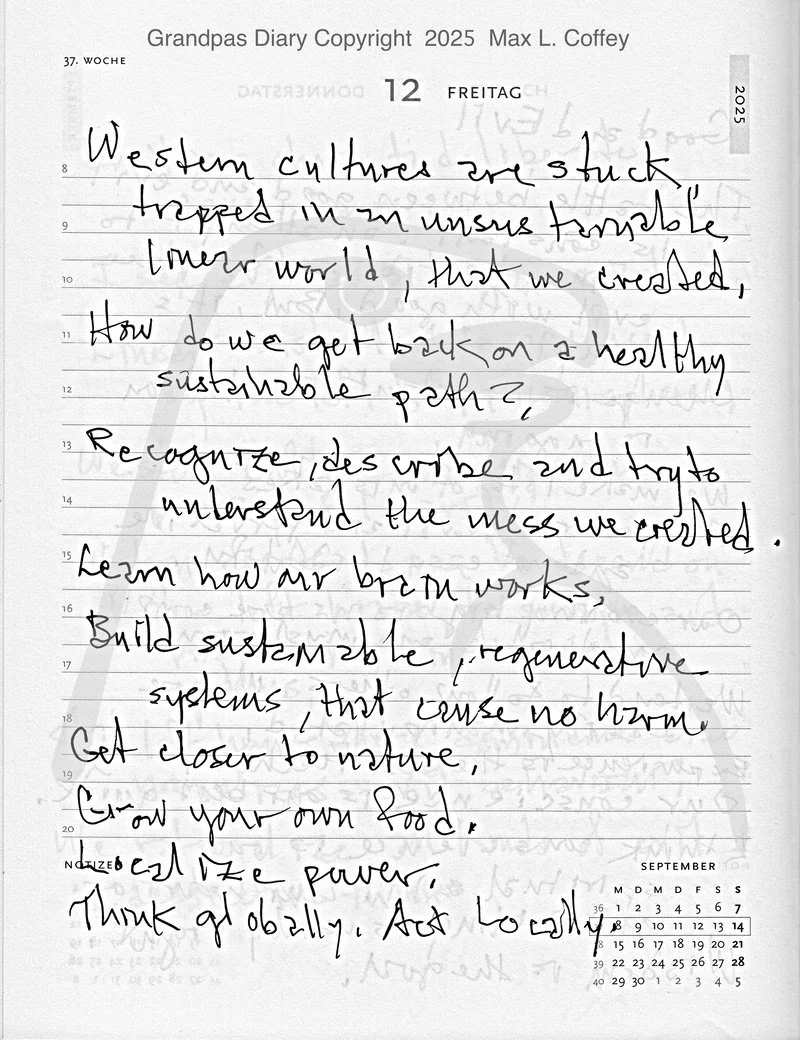 Grandpas Diary Copyright 2025 Max L. Coffey
37. WOCHE
12 FREITAG
2025
8 Western cultures are stuck,
trapped in an unsustainable
9
linear world, that we created,
10
11 How do we get back on a healthy
sustainable path?,
12
13 Recognize, describe and try to
understand the mess we created.
14
15 Learn how our brain works,
16 Build sustainable, regenerative
17
systems, that cause no harm.
18 Get closer to nature,
19 Grow your own food.
20
NOTIZEN Localize power,
Think globally. Act Locally.
SEPTEMBER
M D M D F S S
36 1 2 3 4 5 6 7
8 9 10 11 12 13 14
38 15 16 17 18 19 20 21
39 22 23 24 25 26 27 28
40 29 30 1 2 3 4 5